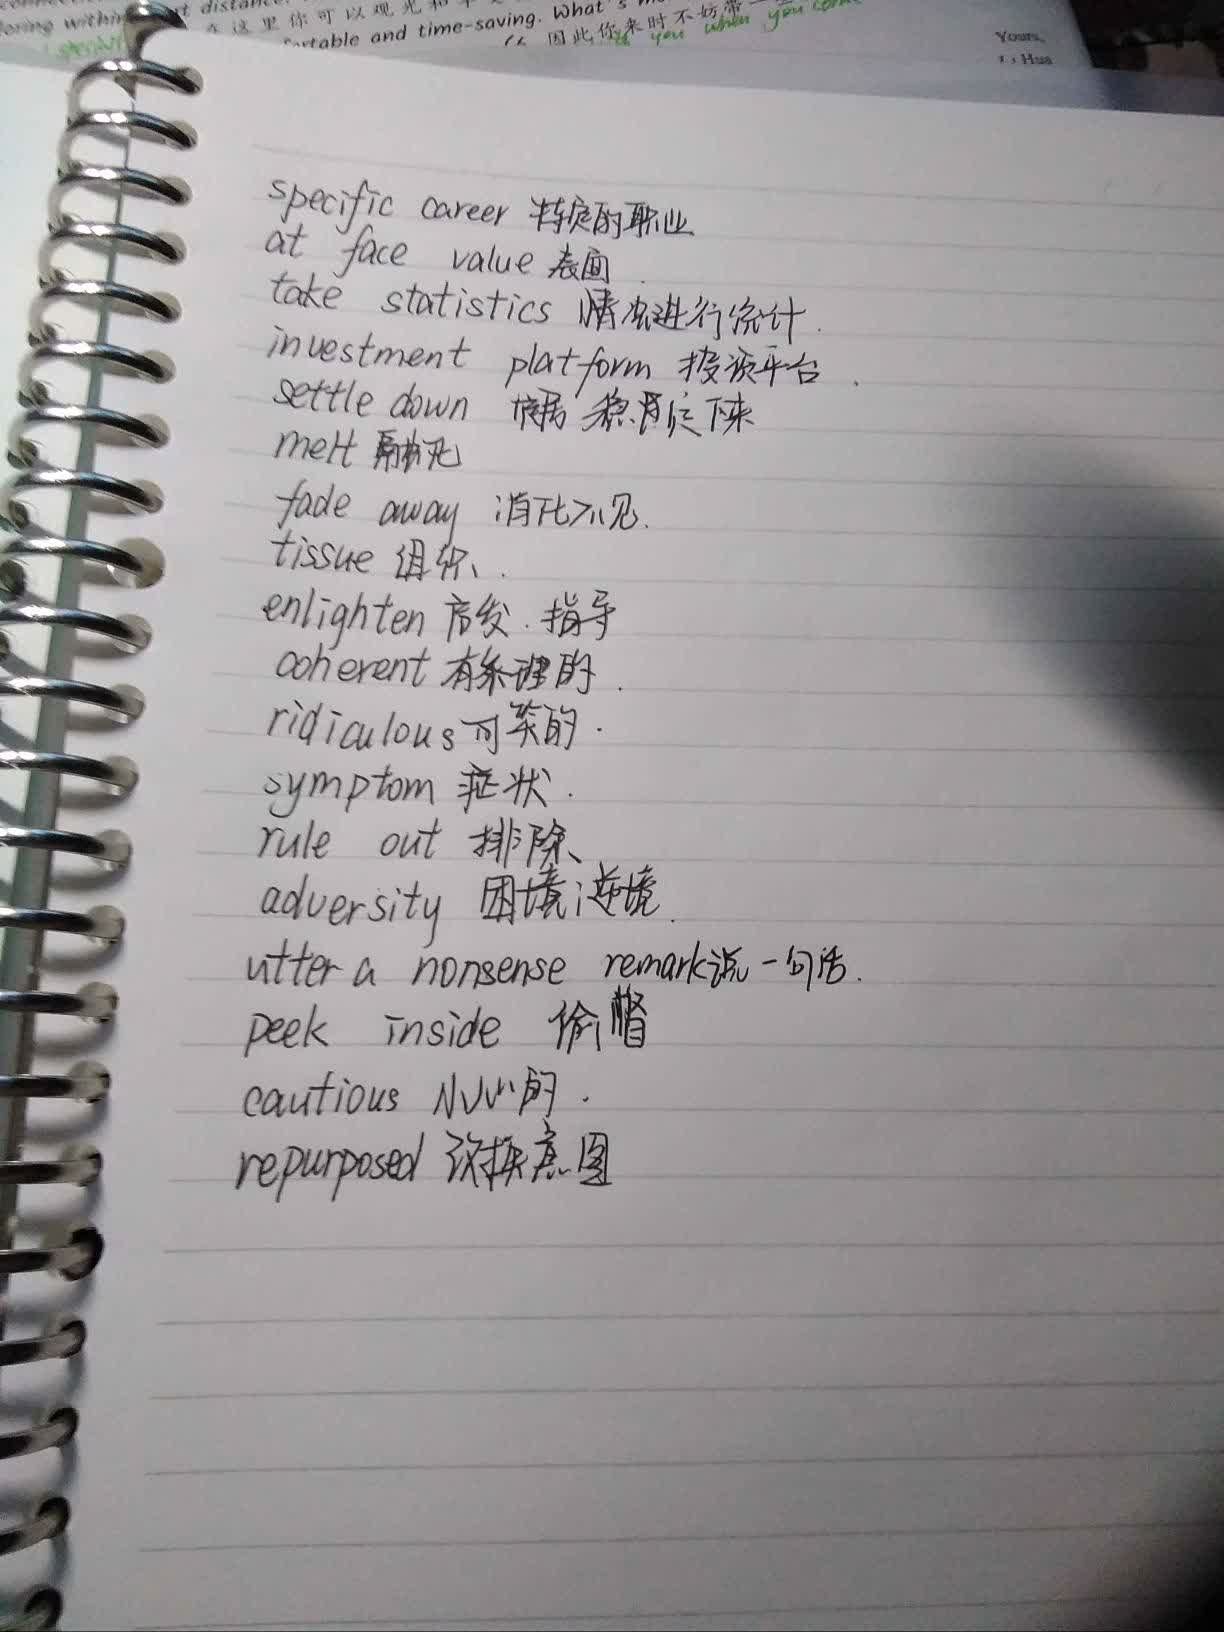 distance.
在这里你可以观光和
fortable and time-saving. What's
因此你来时不妨带一
you when you come
Yours,
Li Hua
specific career 特定的职业
at face value 表面
take statistics 情况进行统计.
investment platform 投资平台.
settle down 定居 稳定下来
melt 融化
fade away 消死不见.
tissue 组织.
enlighten 启发.指导
coherent 有条理的.
ridiculous 可笑的.
symptom 症状.
rule out 排除、
adversity 困境;逆境.
utter a nonsense remark 说一句话.
peek inside 偷瞥
cautious 小心的.
repurposed 改换意图